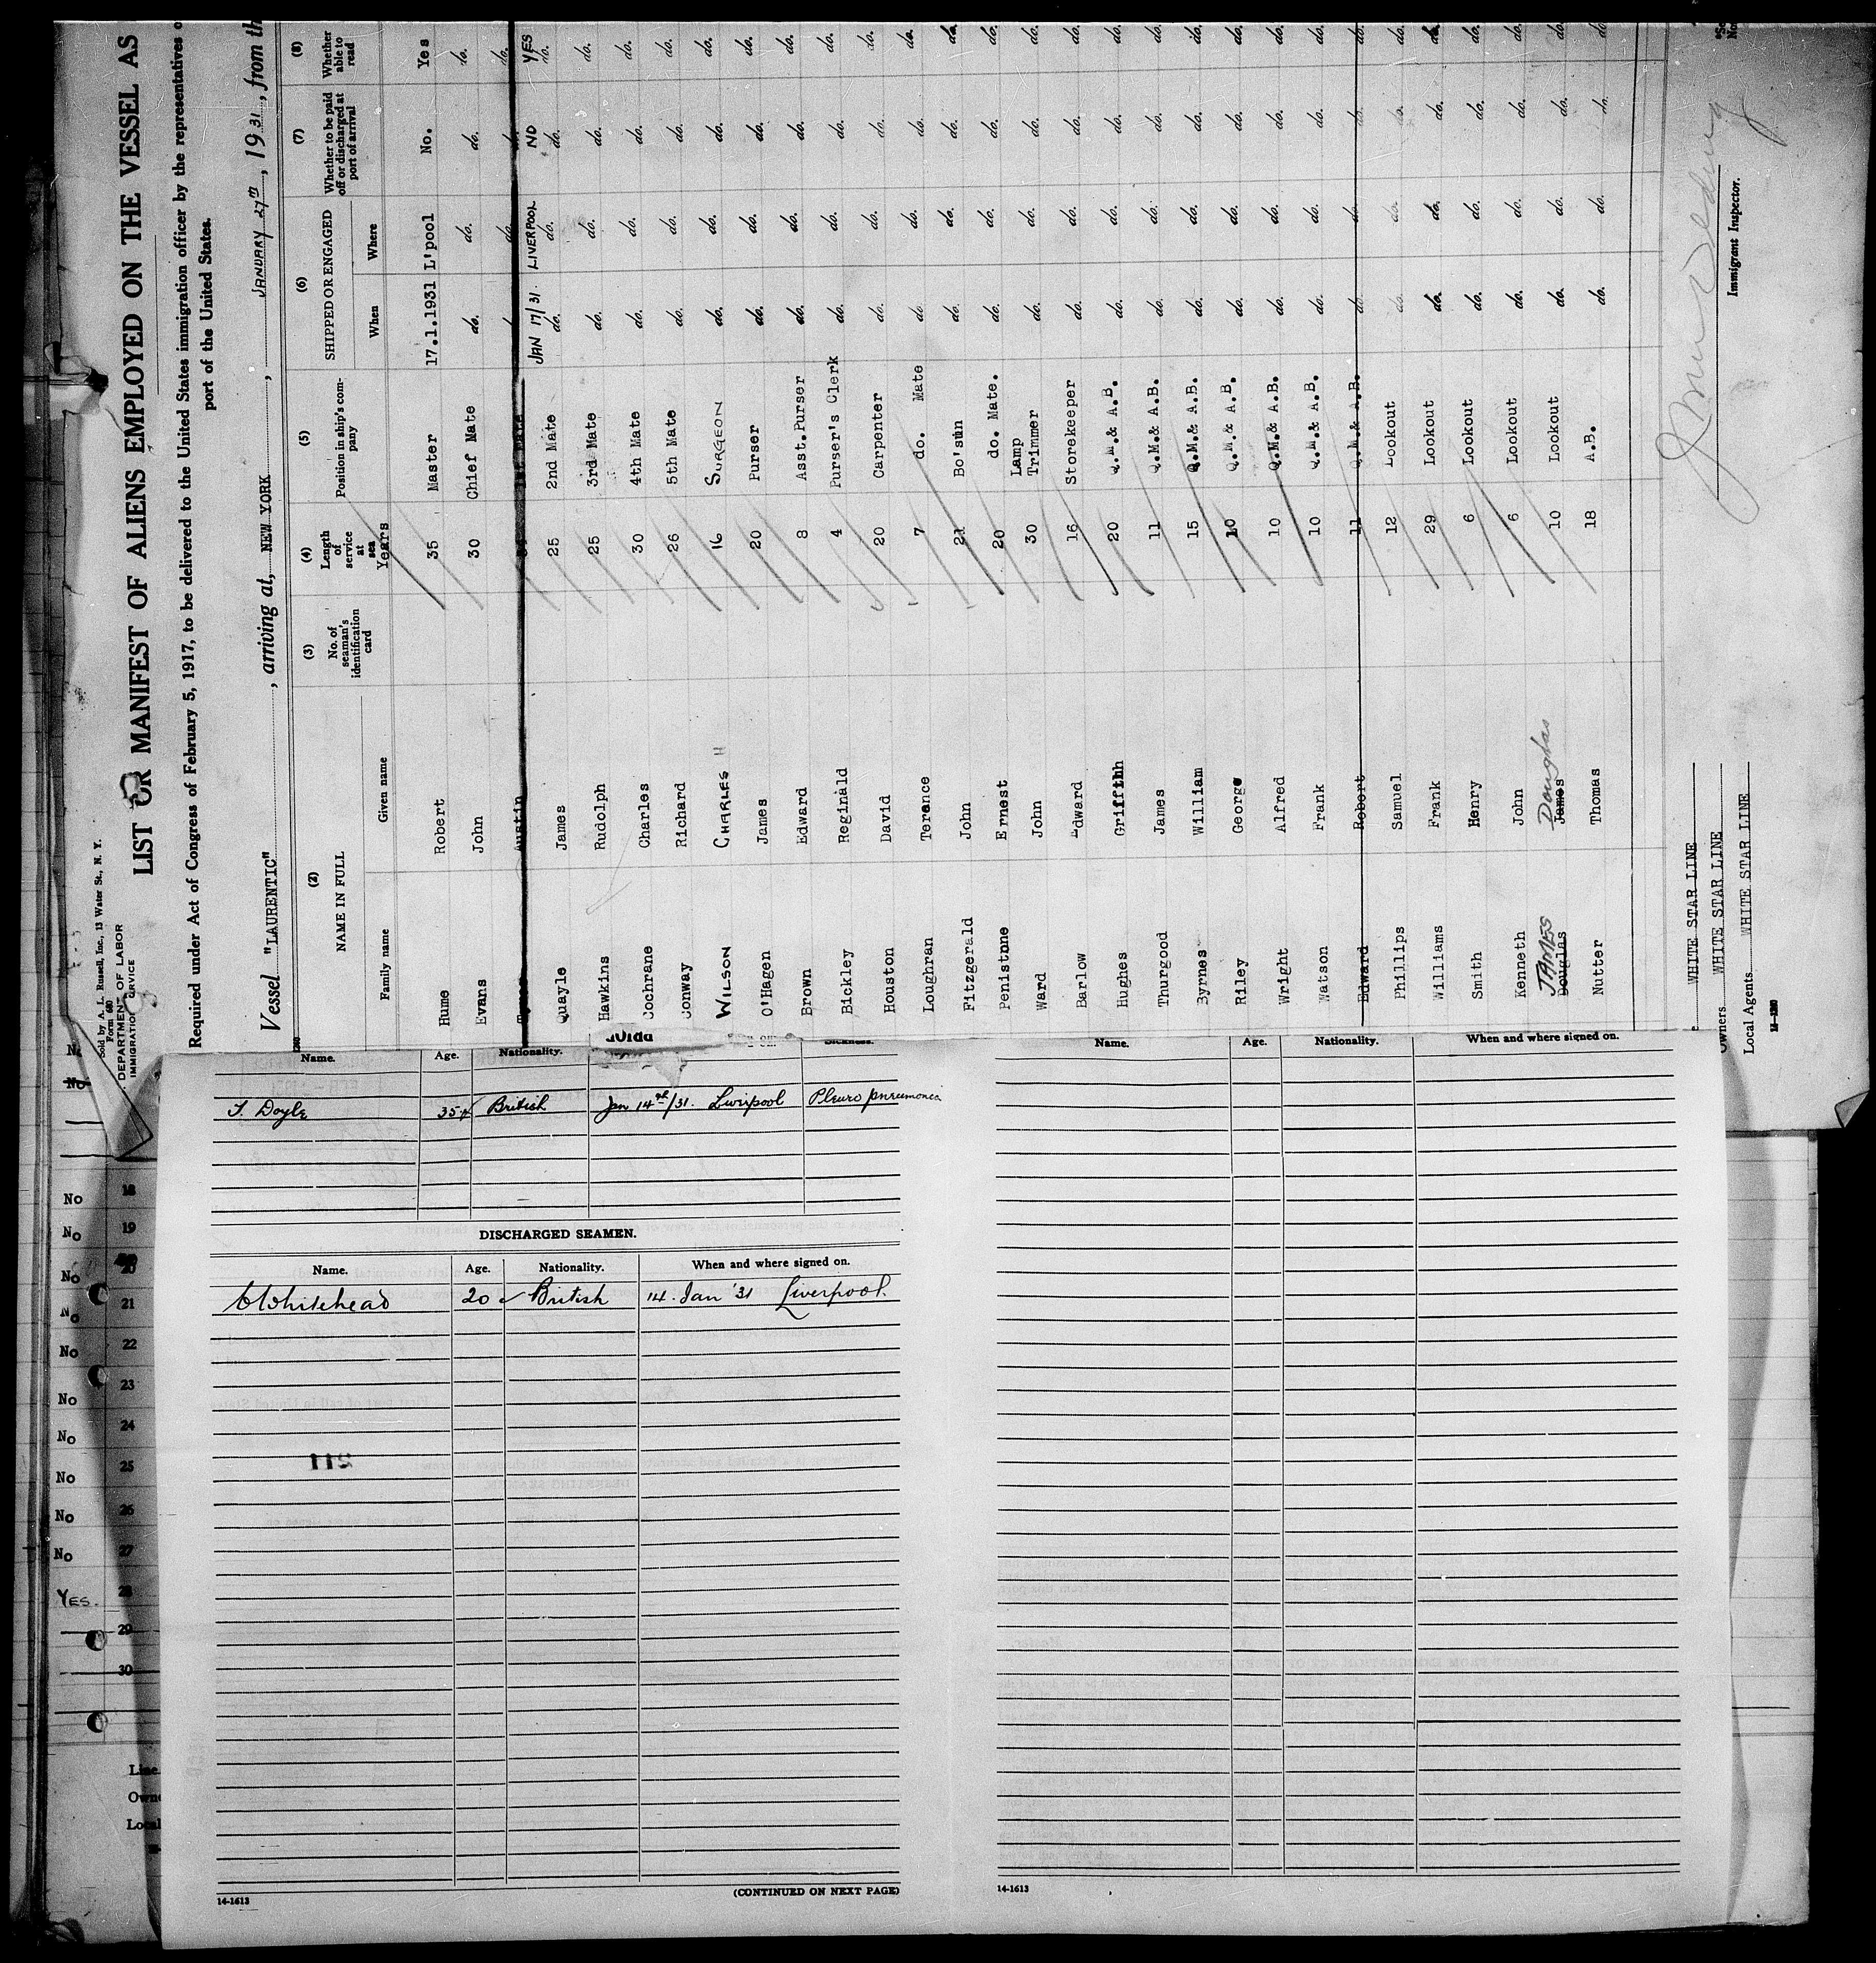 Sold by A. L. Russell, Inc., 13 Water St., N. Y.
Form 680
DEPARTMENT OF LABOR
IMMIGRATION SERVICE
LIST OR MANIFEST OF ALIENS EMPLOYED ON THE VESSEL AS
Required under Act of Congress of February 5, 1917, to be delivered to the United States immigration officer by the representatives o
port of the United States.
Vessel "LAURENTIC", arriving at, NEW YORK, JANUARY 27TH, 1931, from th
(2) NAME IN FULL (3) No. of seaman's identification card (4) Length of service at sea (5) Position in ship's company (6) SHIPPED OR ENGAGED (7) Whether to be paid off or discharged at port of arrival (8) Whether able to read
Family name Given name Years When Where
Hume Robert 35 Master 17.1.1931 L'pool No. Yes
Evans John 30 Chief Mate do. do. do. do.
Austin 1st Mate
JAN 17/31 LIVERPOOL NO YES
Quayle James 25 2nd Mate do. do. do. do.
Hawkins Rudolph 25 3rd Mate do. do. do. do.
Cochrane Charles 30 4th Mate do. do. do. do.
Conway Richard 26 5th Mate do. do. do. do.
WILSON CHARLES H 16 SURGEON do. do. do. do.
O'Hagen James 20 Purser do. do. do. do.
Brown Edward 8 Asst.Purser do. do. do. do.
Bickley Reginald 4 Purser's Clerk do. do. do. do.
Houston David 20 Carpenter do. do. do. do.
Loughran Terence 7 do. Mate do do. do. do.
Fitzgerald John 21 Bo'sun do. do. do. do.
Penistone Ernest 20 do. Mate. do. do. do. do.
Ward John 30 Lamp Trimmer do. do. do. do.
Barlow Edward 16 Storekeeper do. do. do. do.
Hughes Griffith 20 Q.M.& A.B. do. do. do. do.
Thurgood James 11 Q.M.& A.B. do. do. do. do.
Byrnes William 15 Q.M.& A.B. do. do. do. do.
Riley George 10 Q.M.& A.B. do. do. do. do.
Wright Alfred 10 Q.M.& A.B. do. do. do. do.
Watson Frank 10 Q.M.& A.B. do. do. do. do.
Edward Robert 11 Q.M.& A.B. do. do. do. do.
Phillips Samuel 12 Lookout do. do. do. do.
Williams Frank 29 Lookout do. do. do. do.
Smith Henry 6 Lookout do. do. do. do.
Kenneth John 6 Lookout do. do. do. do.
JAMES Douglas
Douglas James 10 Lookout do. do. do. do.
Nutter Thomas 18 A.B. do. do. do. do.
WHITE STAR LINE
Owners WHITE STAR LINE
Local Agents WHITE STAR LINE
Immigrant Inspector.
Name. Age. Nationality.
T. Doyle 35 British Jan 14th/31. Liverpool Pleuro pneumonea
DISCHARGED SEAMEN.
Name. Age. Nationality. When and where signed on.
C Whitehead 20 British 14. Jan '31 Liverpool.
14-1613 (CONTINUED ON NEXT PAGE)
Name. Age. Nationality. When and where signed on.
14-1613
No
No
No 18
No 19
No 20
No 21
No 22
No 23
No 24
No 25
No 26
No 27
YES. 28
29
30
Line
Own
Local